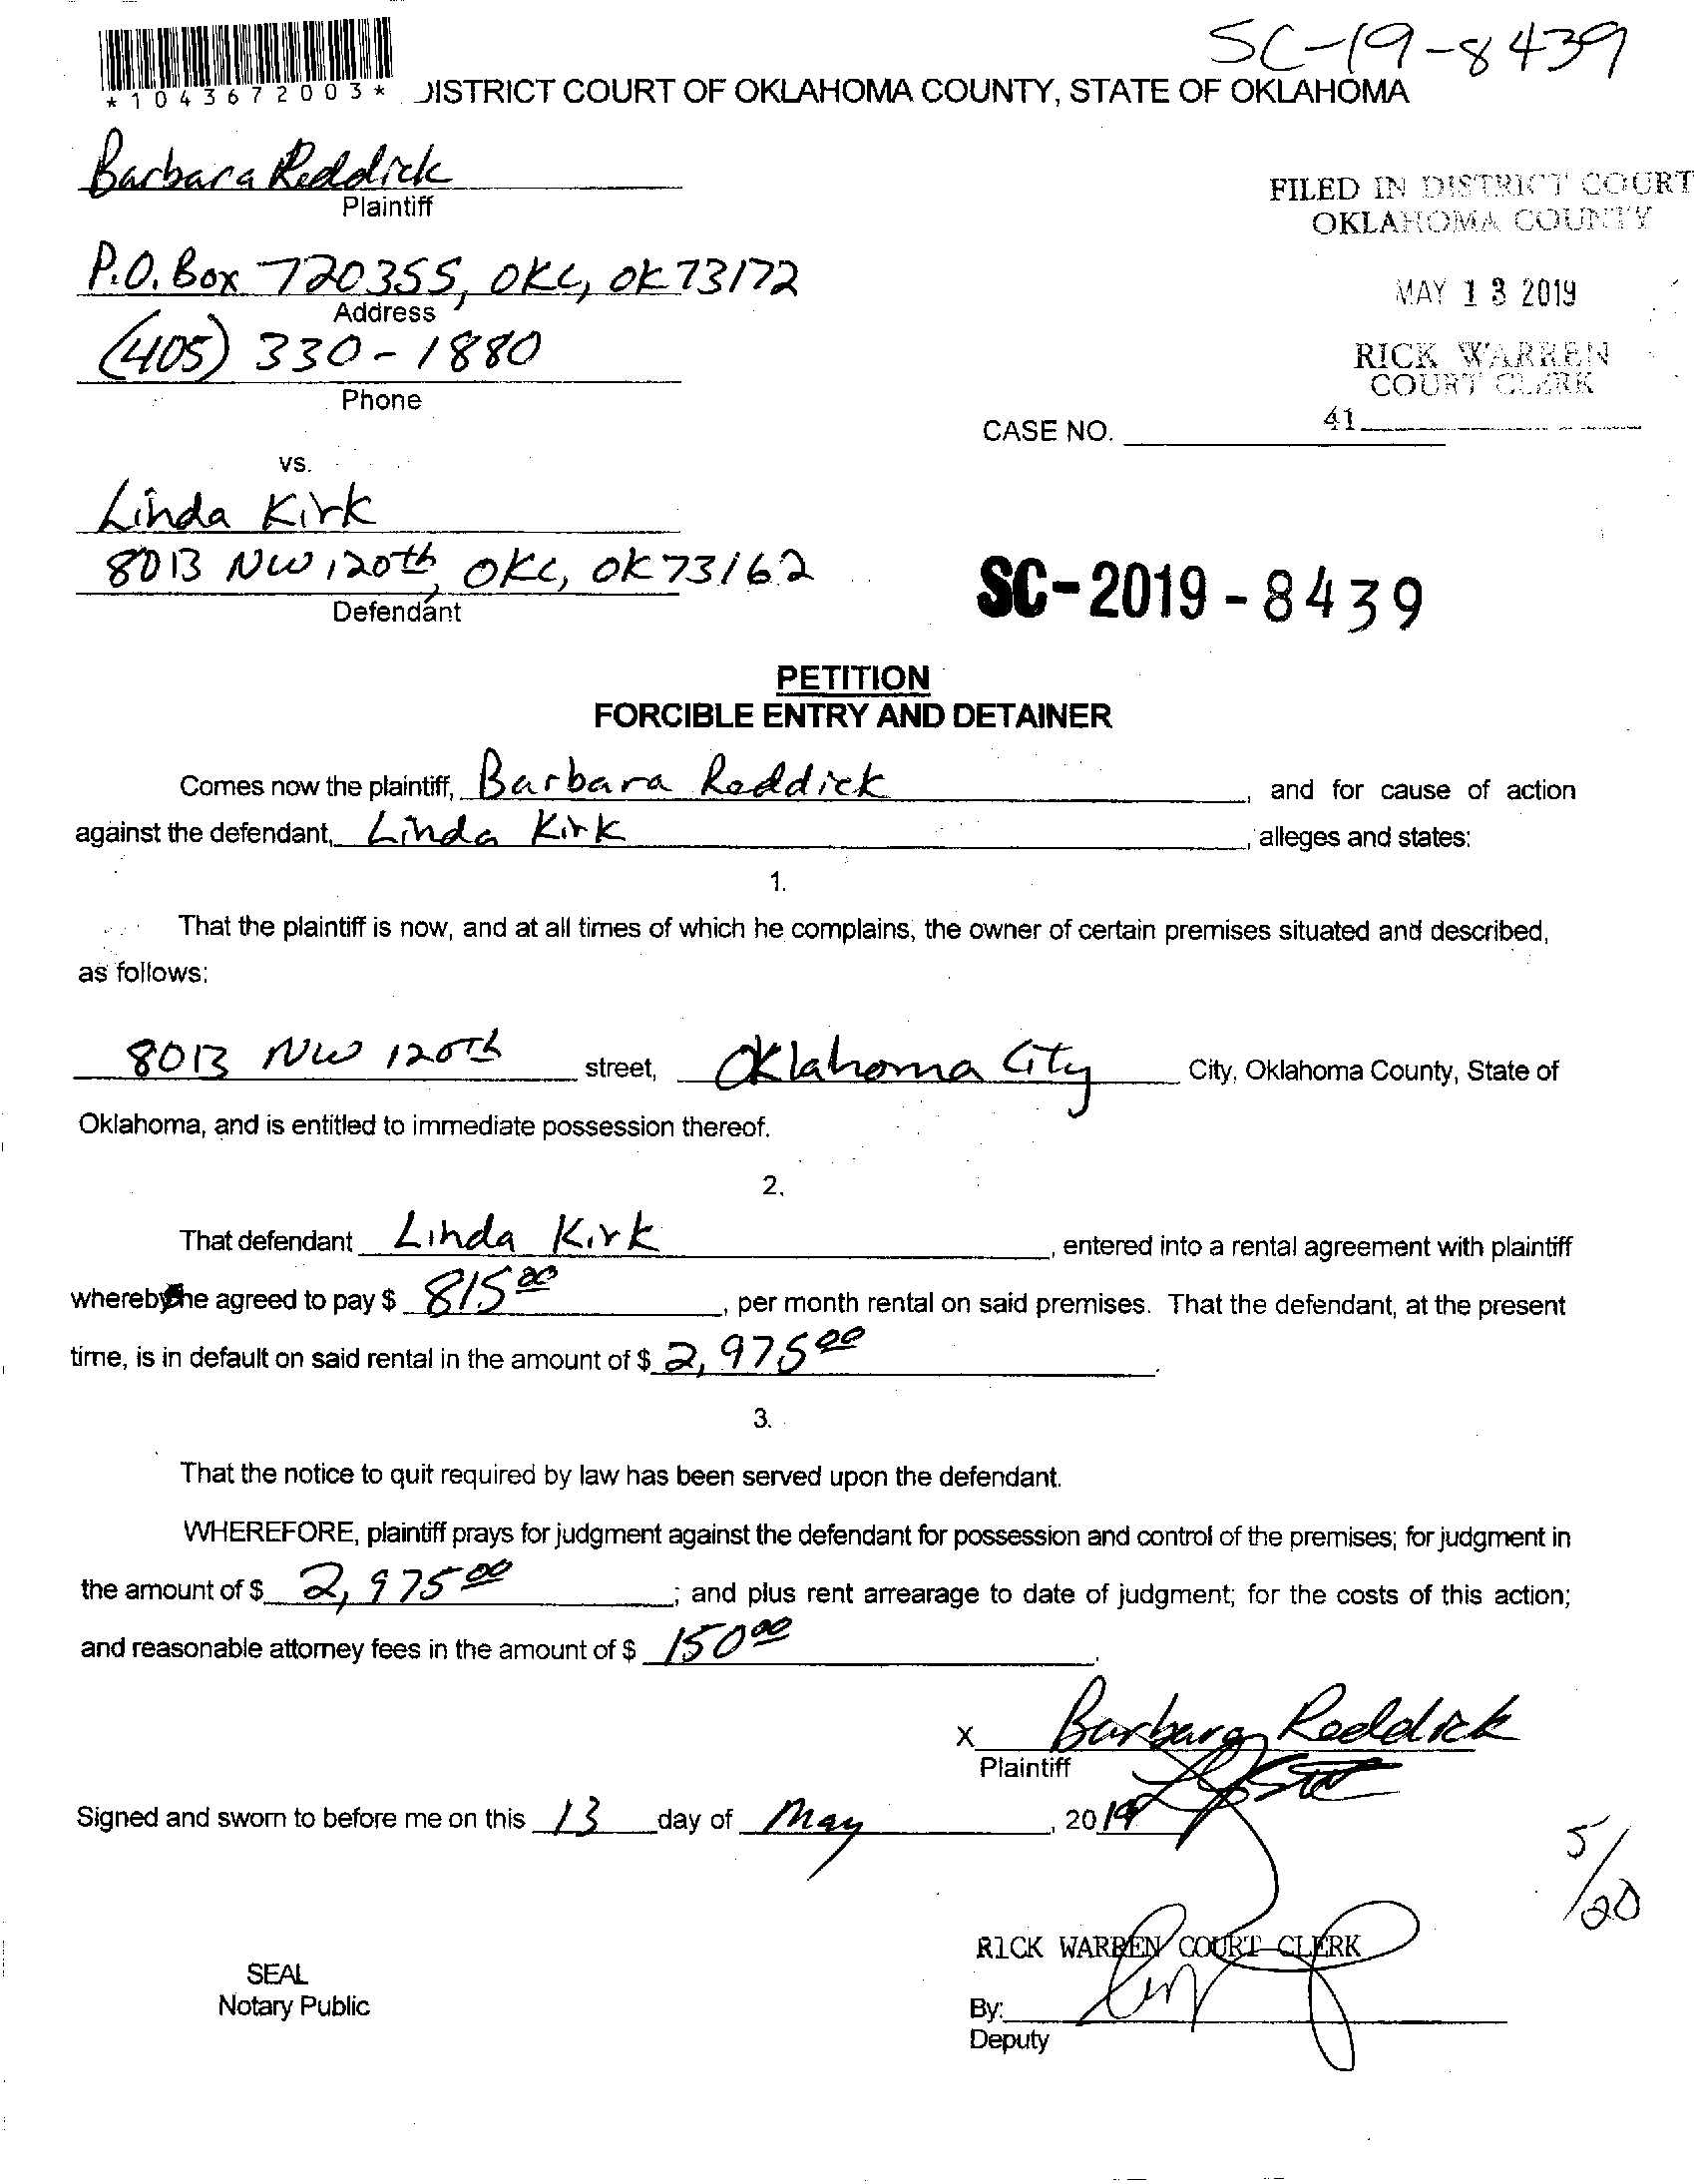 SC-19-8439
*1043672003* DISTRICT COURT OF OKLAHOMA COUNTY, STATE OF OKLAHOMA
Barbara Reddick
Plaintiff
FILED IN DISTRICT COURT
OKLAHOMA COUNTY
P.O. Box 720355, OKC, OK 73172
Address
MAY 13 2019
(405) 330-1880
Phone
RICK WARREN
COURT CLERK
41
CASE NO.
vs.
Linda Kirk
8013 NW 120th, OKC, OK 73162
Defendant
SC-2019-8439
PETITION
FORCIBLE ENTRY AND DETAINER
Comes now the plaintiff, Barbara Reddick, and for cause of action
against the defendant, Linda Kirk, alleges and states:
1.
That the plaintiff is now, and at all times of which he complains, the owner of certain premises situated and described,
as follows:
8013 NW 120Th street, Oklahoma City City, Oklahoma County, State of
Oklahoma, and is entitled to immediate possession thereof.
2.
That defendant Linda Kirk, entered into a rental agreement with plaintiff
whereby he agreed to pay $ 815.00, per month rental on said premises. That the defendant, at the present
time, is in default on said rental in the amount of $ 2,975 00.
3.
That the notice to quit required by law has been served upon the defendant.
WHEREFORE, plaintiff prays for judgment against the defendant for possession and control of the premises; for judgment in
the amount of $ 2,975 00; and plus rent arrearage to date of judgment; for the costs of this action;
and reasonable attorney fees in the amount of $ 150 00.
X Barbara Reddick
Plaintiff
Signed and sworn to before me on this 13 day of May, 2019
5/20
RICK WARREN COURT CLERK
SEAL
Notary Public
By:
Deputy